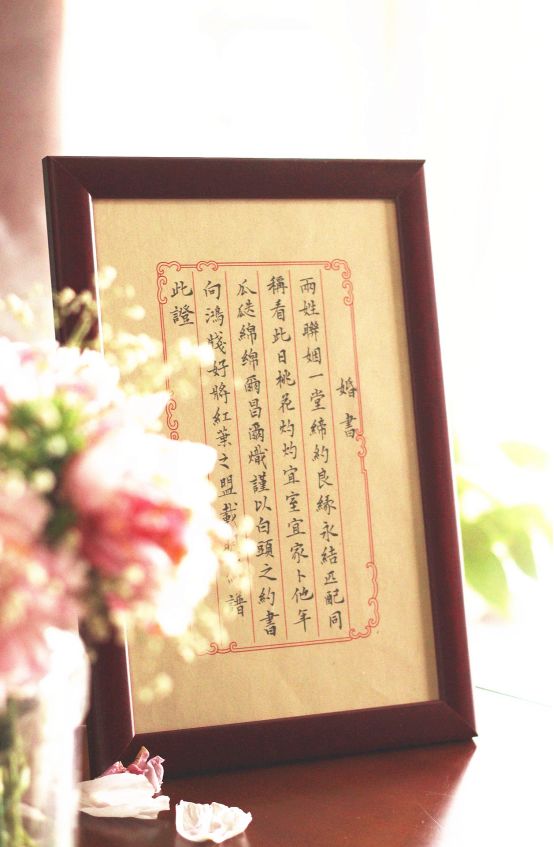 婚書
兩姓聯姻一堂締約良緣永結匹配同
稱看此日桃花灼灼宜室宜家卜他年
瓜瓞綿綿爾昌爾熾謹以白頭之約書
向鴻牋好將紅葉之盟載明譜
此證